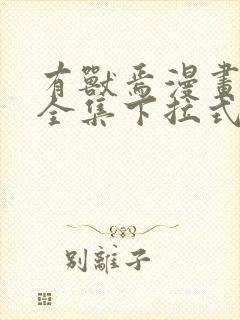 有獸焉漫畫
全集下拉式
別離子